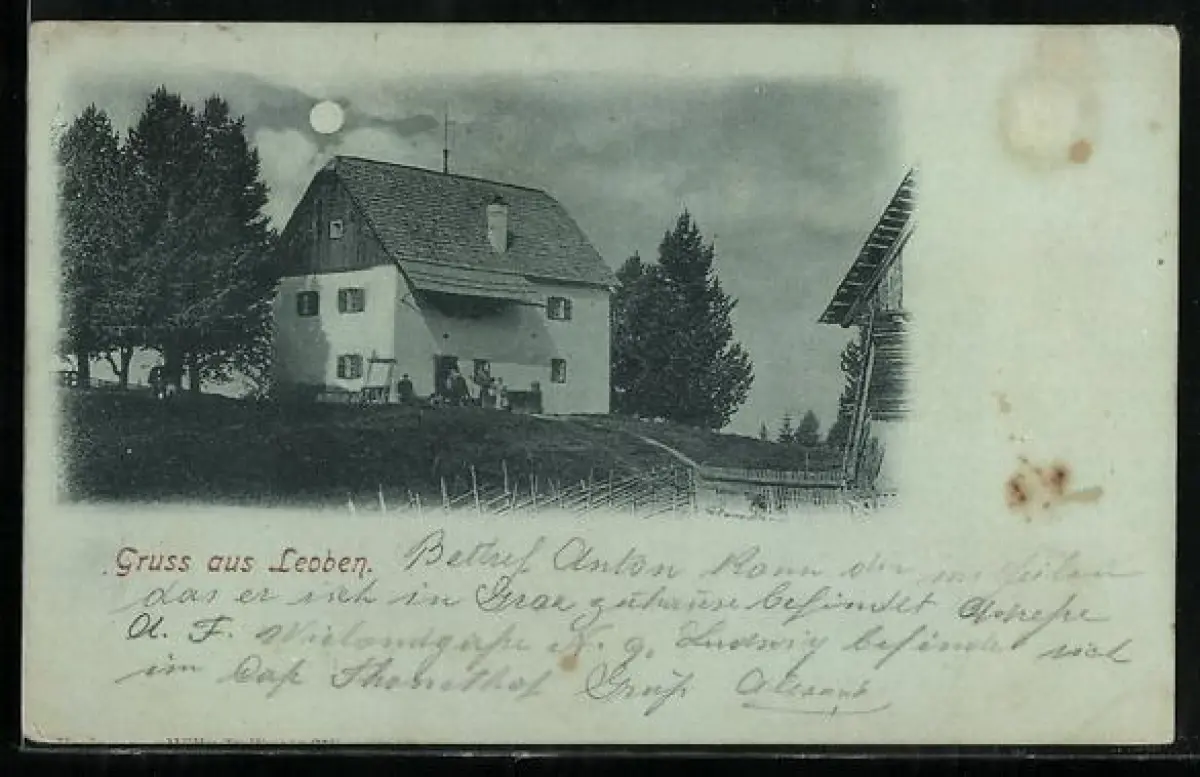 Gruss aus Leoben.
Betref Anton Kann dir mitteilen
das er sich in Graz zuhause befindet Adresse
A. F. Wielandgasse N. 9. Ludwig befindet sich
im Caf Thonethof Gruß